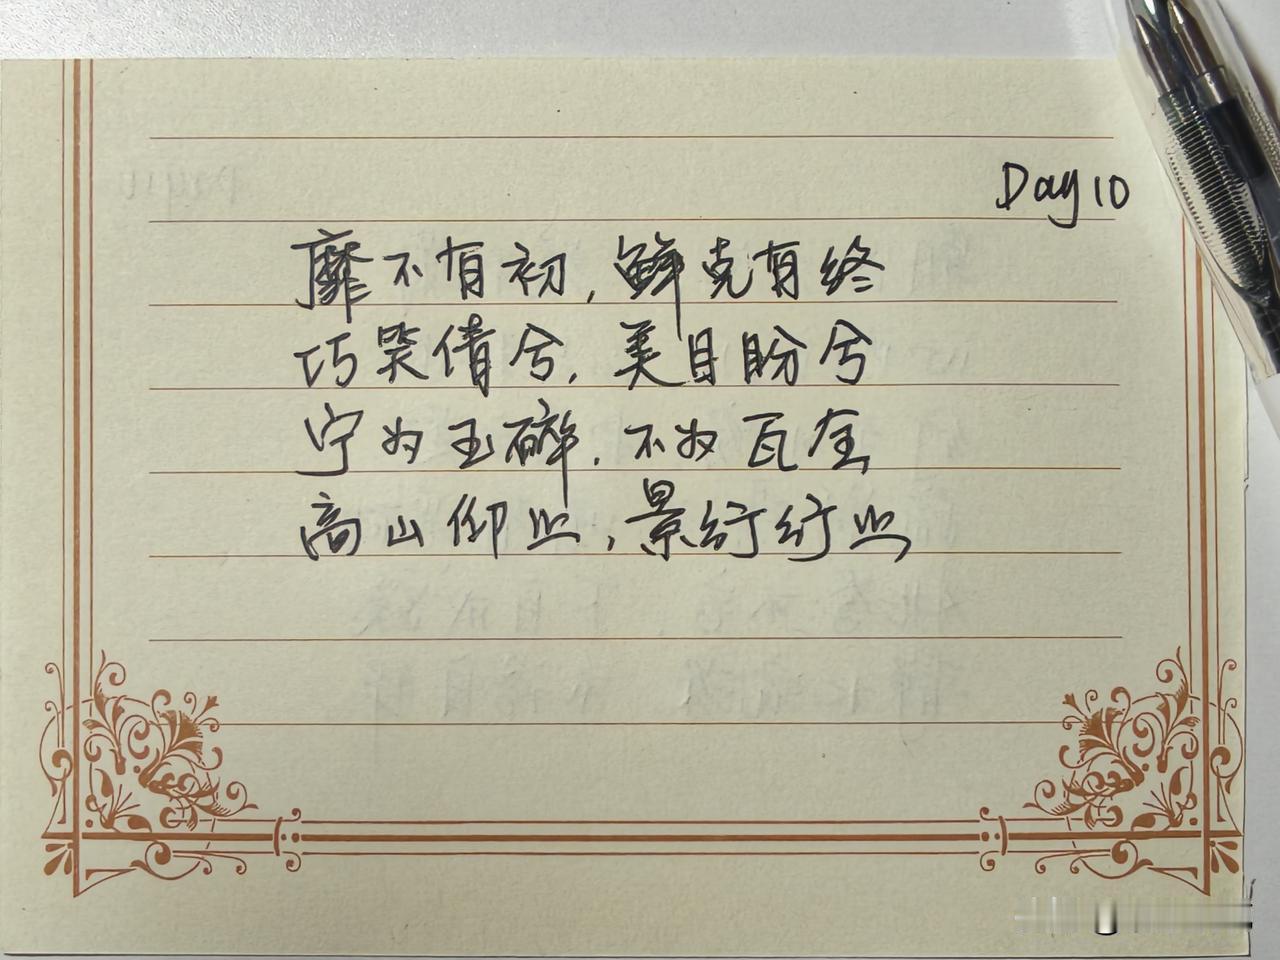 Day 10
靡不有初,鲜克有终
巧笑倩兮,美目盼兮
宁为玉碎,不为瓦全
高山仰止,景行行止